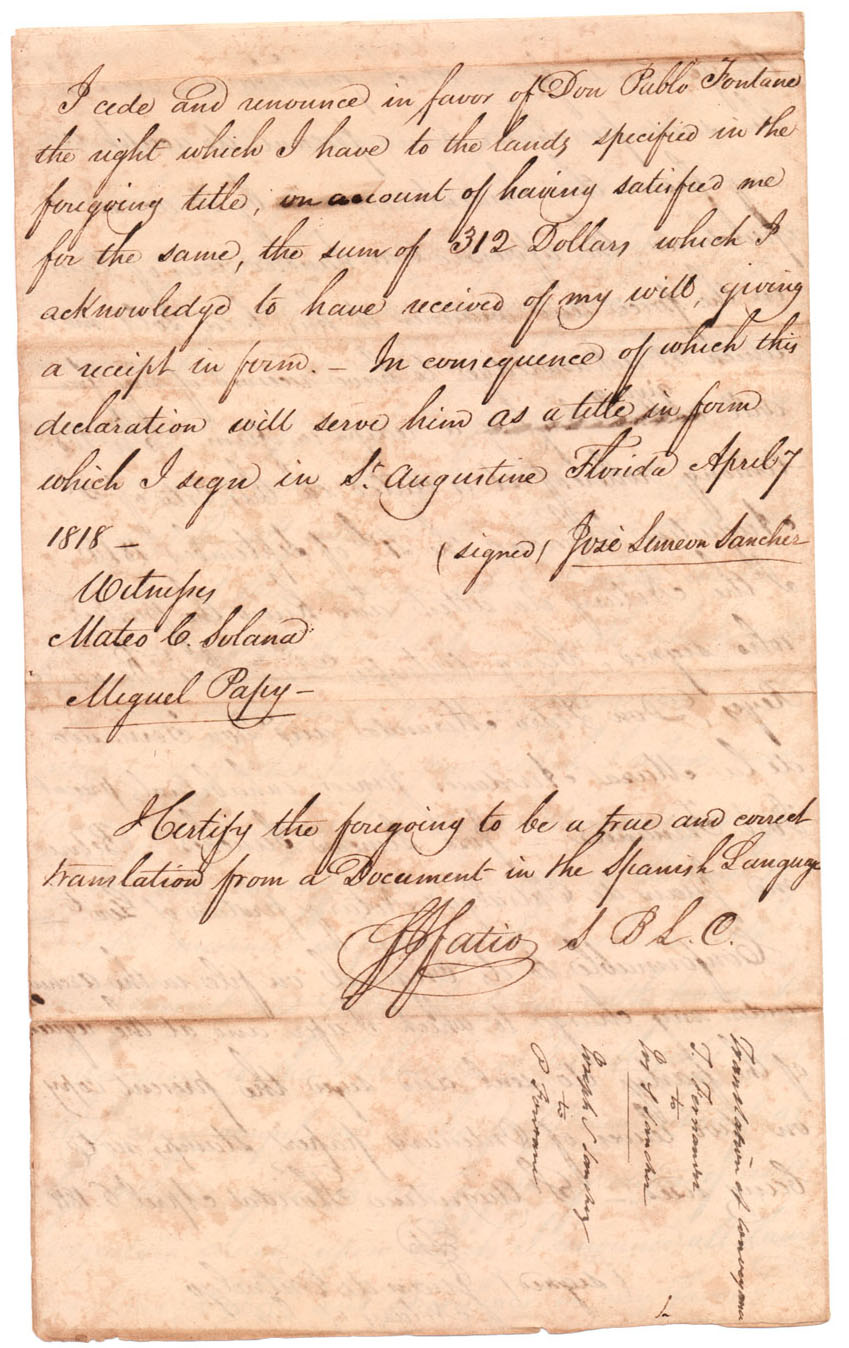 I cede and renounce in favor of Don Pablo Fontane
the right which I have to the lands specified in the
foregoing title, on account of having satisfied me
for the same, the sum of 312 Dollars which I
acknowledge to have received of my will, giving
a receipt in form. – In consequence of which this
declaration will serve him as a title in form
which I sign in St. Augustine Florida April 7
1818 –
(signed) José Simeon Sanchez
Witnesses
Mateo C. Solana
Miguel Papy –
I Certify the foregoing to be a true and correct
translation from a Document in the Spanish Language
F J Fatio S B L. C.
Translation of conveyance
T. Fernandez
to
Jos S. Sanchez
Joseph S Sanchez
to
P Fontane